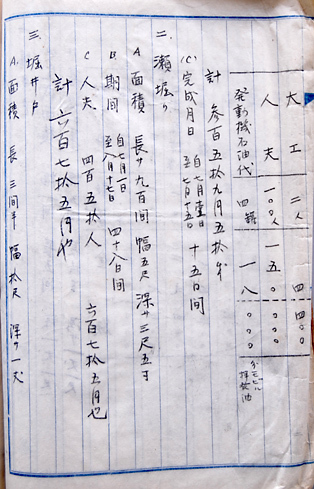 大工 二人 四四〇〇
人夫 一〇〇人 一五〇〇〇
発動機石油代 四罐 一八〇〇
揮発油
計 参百五拾九月五拾
(C) 完成月日 自七月壹日 至七月十五日 十五日間
二、瀬堀り
A 面積 長サ九百間 幅五尺 深サ三尺五寸
B 期間 自七月一日 至八月十七日 四十八日間
C 人夫 四百五拾人 六百七拾五円也
計 六百七拾五円也
三、堀井戸
A. 面積 長 三間半 幅拾尺 深サ一丈